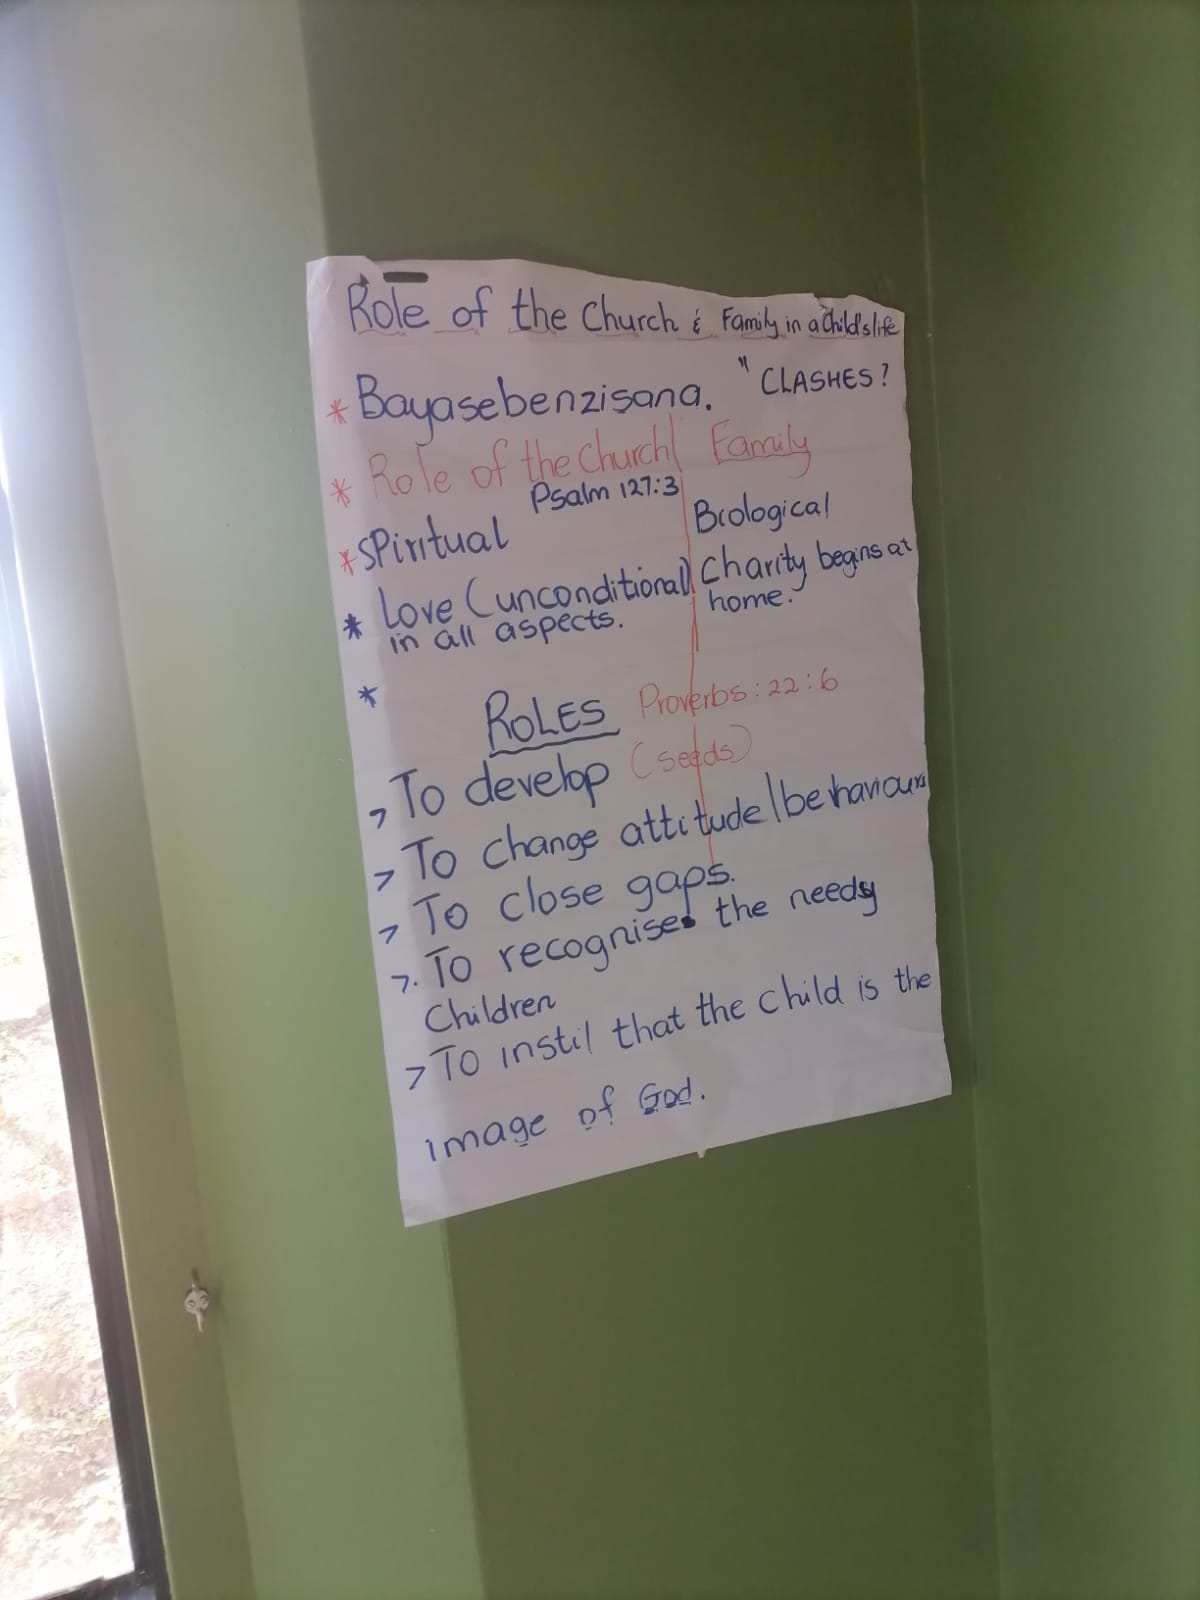 Role of the Church & Family in a Child's life
* Bayasebenzisana. " CLASHES?
* Role of the Church | Family
Psalm 127:3
* SPiritual Biological
* Love (unconditional) Charity begins at
in all aspects. home.
*
ROLES Proverbs: 22:6
> To develop (seeds)
> To change attitude/behaviours
> To close gaps.
>. To recognise the needy
Children
> To instil that the child is the
image of God.